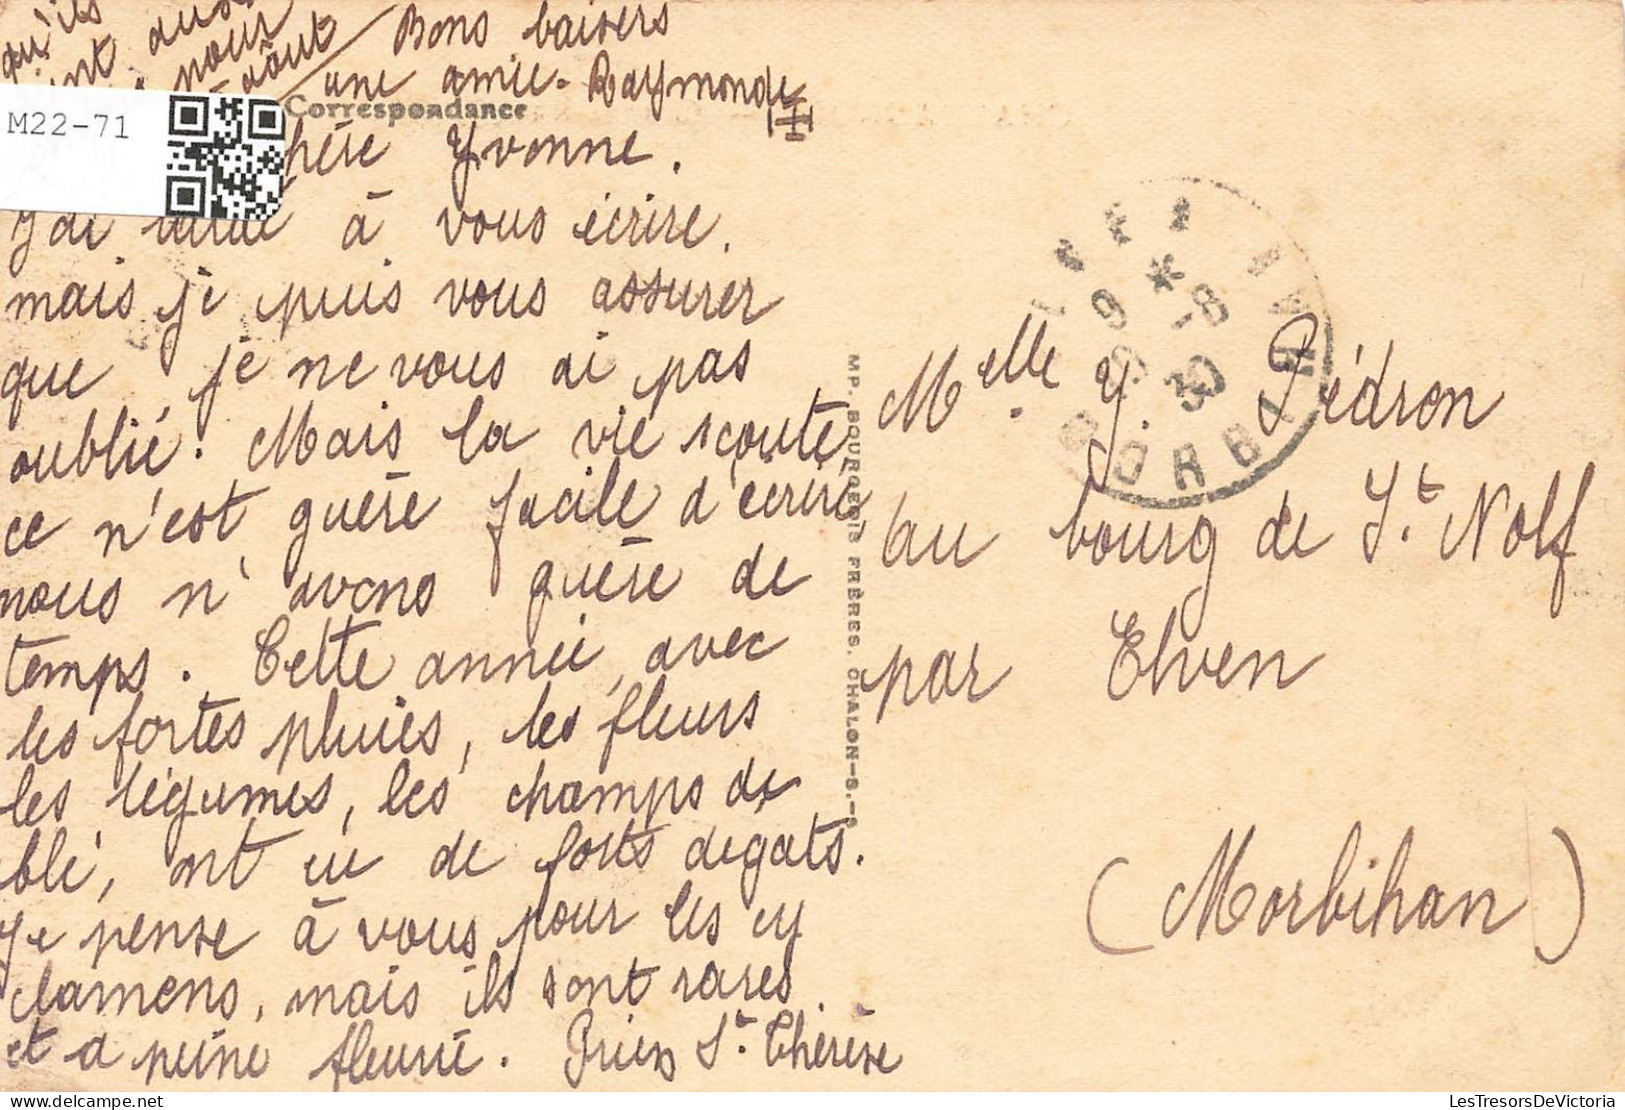 qu'ils
pour
août
Bons baisers
une amie. Raymonde
M22-71
Correspondance
Yvonne.
J'ai tardé à vous écrire.
mais je puis vous assurer
que je ne vous ai pas
oublié. Mais la vie scoute,
ce n'est guère facile d'écrire,
nous n'avons guère de
temps. Cette année, avec
les fortes pluies, les fleurs
les légumes, les champs de
blé, ont eu de forts degats.
Je pense à vous pour les cy
clamens, mais ils sont rares
et a peine fleurie. Priez St. Thérèse
MP. BOURGEOIS FRÈRES. CHALON-S.-S
9 * 
29 -8
30
MORBIHAN
Melle Y. Pédron
au bourg de St. Nolf
par Elven
(Morbihan)
LesTresorsDeVictoria